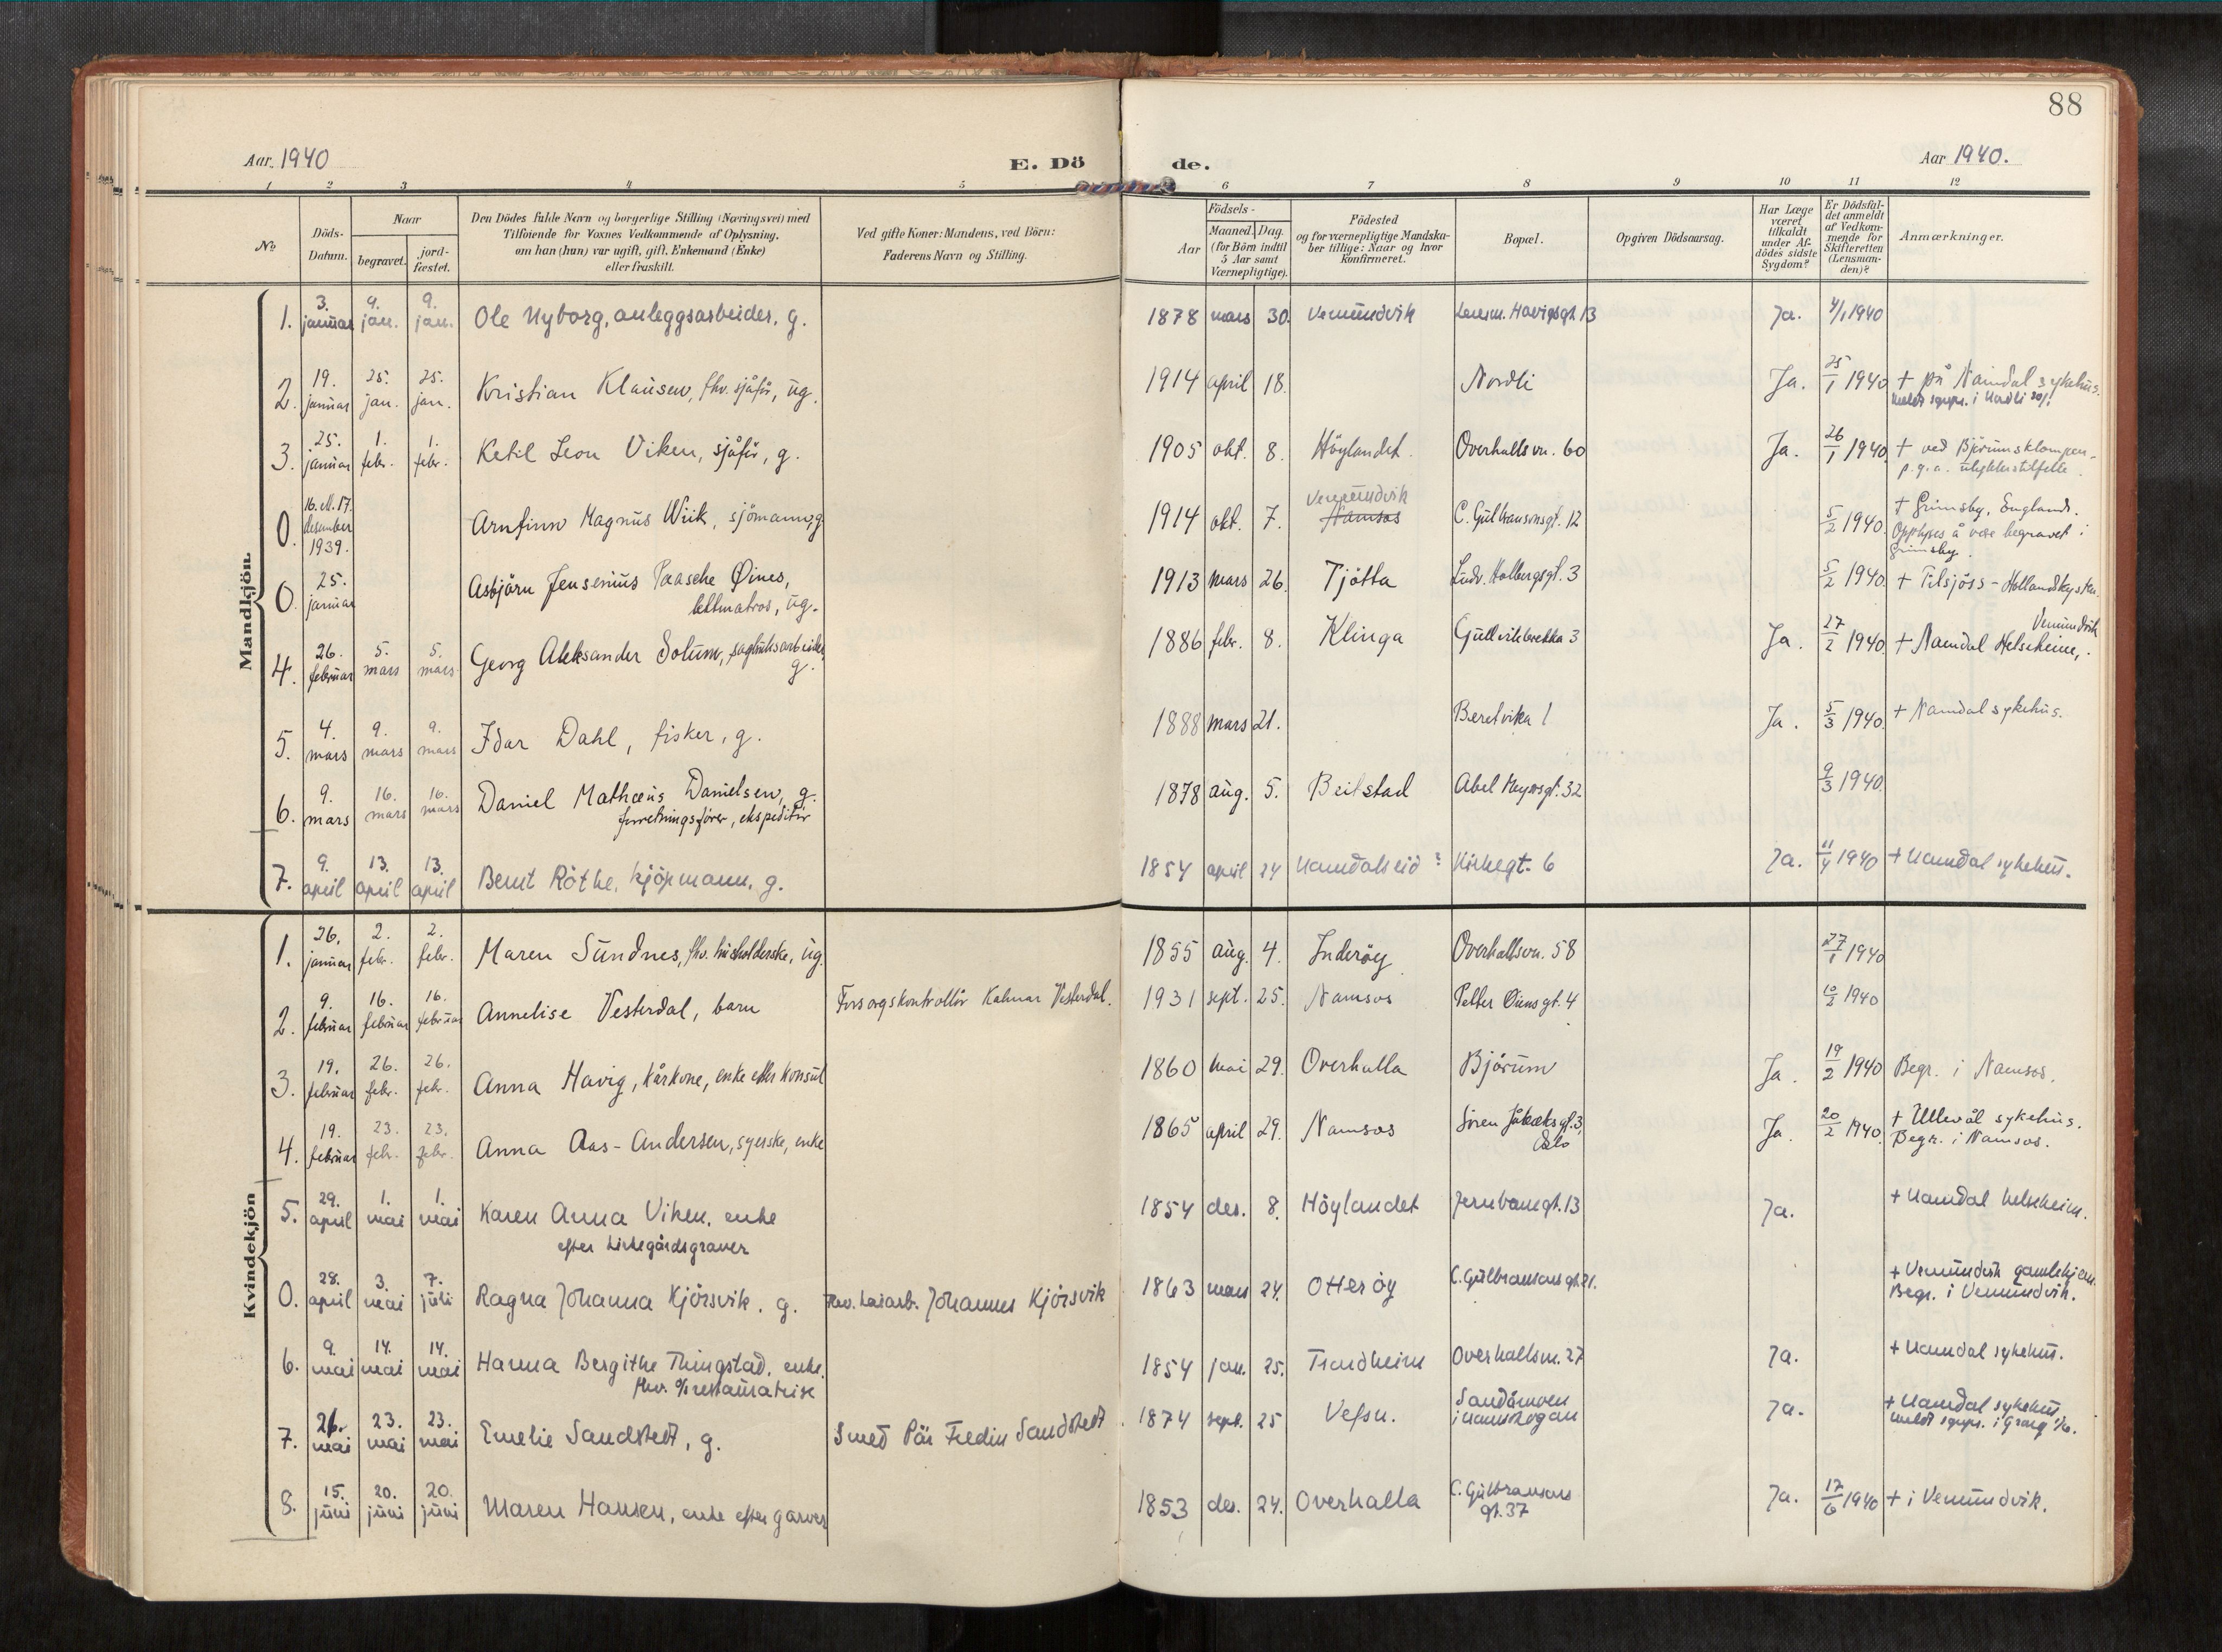 88
Aar 1940
E. Dö
de.
Aar 1940.
1 2 3 4 5 6 7 8 9 10 11 12
No.
Döds-
Datum.
Naar
begravet.
jord-
fæstet.
Den Dödes fulde Navn og borgerlige Stilling (Næringsvei) med
Tilföiende for Voxnes Vedkommende af Oplysning,
om han (hun) var ugift, gift, Enkemand (Enke)
eller fraskilt.
Ved gifte Koner: Mandens, ved Börn:
Faderens Navn og Stilling.
Födsels-
Aar
Maaned. Dag.
(for Börn indtil
5 Aar samt
Værnepligtige).
Födested
og for værnepligtige Mandska-
ber tillige: Naar og hvor
Konfirmeret.
Bopæl.
Opgiven Dödsaarsag.
Har Læge
været
tilkaldt
under Af-
dödes sidste
Sygdom?
Er Dödsfal-
det anmeldt
af Vedkom-
mende for
Skifteretten
(Lensman-
den)?
Anmærkninger.
Mandkjön.
1. 3. januar 9. jan. 9. jan. Ole Nyborg, anleggsarbeider, g. 1878 mars 30. Vemundvik Lensm. Havigsgt. 13 Ja. 4/1 1940
2. 19. januar 25. jan. 25. jan. Kristian Klausen, fhv. sjåför, ug. 1914 april 18. Nordli Ja. 25/1 1940 + på Namdal sykehus.
i Nordli
3. 25. januar 1. febr. 1. febr. Ketil Leon Viken, sjåför, g. 1905 okt. 8. Höylandet. Overhallsvn. 60 Ja. 26/1 1940. + ved Bjørumsklompen,
p.g.a. ulykkestilfelle.
0. 16. ell. 17. desember 1939. Arnfinn Magnus Wiik, sjömann, g. 1914 okt. 7. Vemundvik
Namsos C. Gulbransonsgt. 12 5/2 1940. + Grimsby, England.
Opplyses å være begravet i
Grimsby.
0. 25. januar Asbjörn Jensenius Paasche Øines,
lettmatros, ug. 1913 mars 26. Tjötta Ludv. Holbergsgt. 3 5/2 1940. + Tilsjöss - Hollandskysten.
4. 26. februar 5. mars 5. mars Georg Aleksander Solum, sagbruksarbeider,
g. 1886 febr. 8. Klinga Gullvikbrekka 3 Ja. 27/2 1940 + Namdal Helseheim,
Vemundvik.
5. 4. mars 9. mars 9. mars Idar Dahl, fisker, g. 1888 mars 21. Beretvika 1 Ja. 5/3 1940. + Namdal sykehus.
6. 9. mars 16. mars 16. mars Daniel Mathæus Danielsen, g.
forretningsförer, ekspeditör 1878 aug. 5. Beitstad Abel Meyersgt. 32 9/3 1940.
7. 9. april 13. april 13. april Bernt Röthe, kjöpmann, g. 1854 april 24 Namdalseid ? Kirkegt. 6 Ja. 11/4 1940 + Namdal sykehus.
Kvindekjön
1. 26. januar 2. febr. 2. febr. Maren Sundnes, fhv. husholderske, ug. 1855 aug. 4. Inderöy Overhallsvn. 58 27/1 1940
2. 9. februar 16. februar 16. februar Annelise Vesterdal, barn Forsorgskontrollör Kalmar Vesterdal. 1931 sept. 25. Namsos Petter Öiensgt. 4 10/2 1940
3. 19. februar 26. febr. 26. febr. Anna Havig, kårkone, enke efter konsul 1860 mai 29. Overhalla Bjørum Ja. 19/2 1940 Begr. i Namsos.
4. 19. februar 23. febr. 23. febr. Anna Aas-Andersen, syerske, enke 1865 april 29. Namsos Sören Jåbæksgt. 3,
Oslo Ja. 20/2 1940. + Ullevål sykehus.
Begr. i Namsos.
5. 29. april 1. mai 1. mai Karen Anna Viken, enke
efter kirkegårdsgraver 1854 des. 8. Höylandet Jernbanegt. 13 Ja. + Namdal helseheim.
0. 28. april 3. mai 7. juli Ragna Johanna Kjörsvik, g. fhv. Johannes Kjörsvik 1863 mars 24. Otteröy C. Gulbransonsgt. 21. + Vemundvik gamlehjem.
Begr. i Vemundvik.
6. 9. mai 14. mai 14. mai Hanna Bergithe Thingstad, enke,
fhv. restauratrise 1854 jan. 25. Trondheim Overhallsvn. 27 Ja. + Namdal sykehus.
7. 21. mai 23. mai 23. mai Emelie Sandstedt, g. Smed Pär Fredin Sandstedt 1874 sept. 25 Vefsn. Sandåmoen
i Namsskogan Ja. + Namdal sykehus.
i Grong
8. 15. juni 20. juni 20. juni Maren Hansen, enke efter garver 1853 des. 24. Overhalla C. Gulbransons
gt. 37 Ja. 17/6 1940 + i Vemundvik.